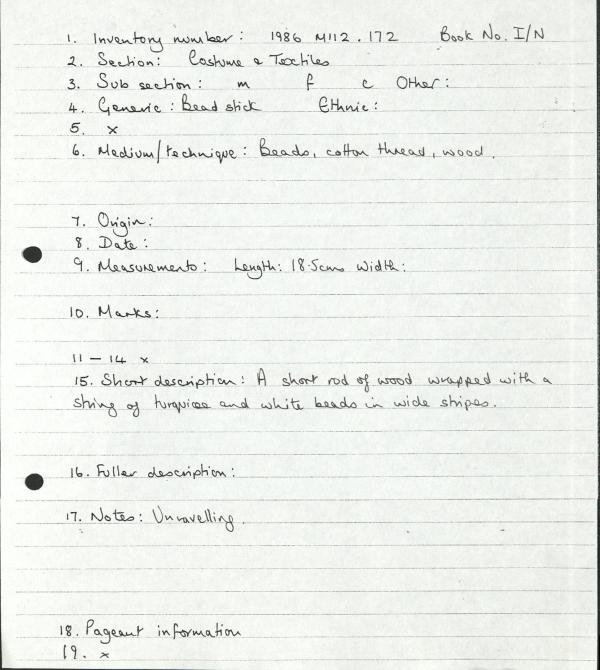 1. Inventory number: 1986 M112.172 Book No. I/N
2. Section: Costume & Textiles
3. Sub section: m f c Other:
4. Generic: Bead stick Ethnic:
5. x
6. Medium/technique: Beads, cotton thread, wood.
7. Origin:
8. Date:
9. Measurements: Length: 18.5cms Width:
10. Marks:
11 – 14 x
15. Short description: A short rod of wood wrapped with a
string of turquoise and white beads in wide stripes.
16. Fuller description:
17. Notes: Unravelling.
18. Pageant information
19. x